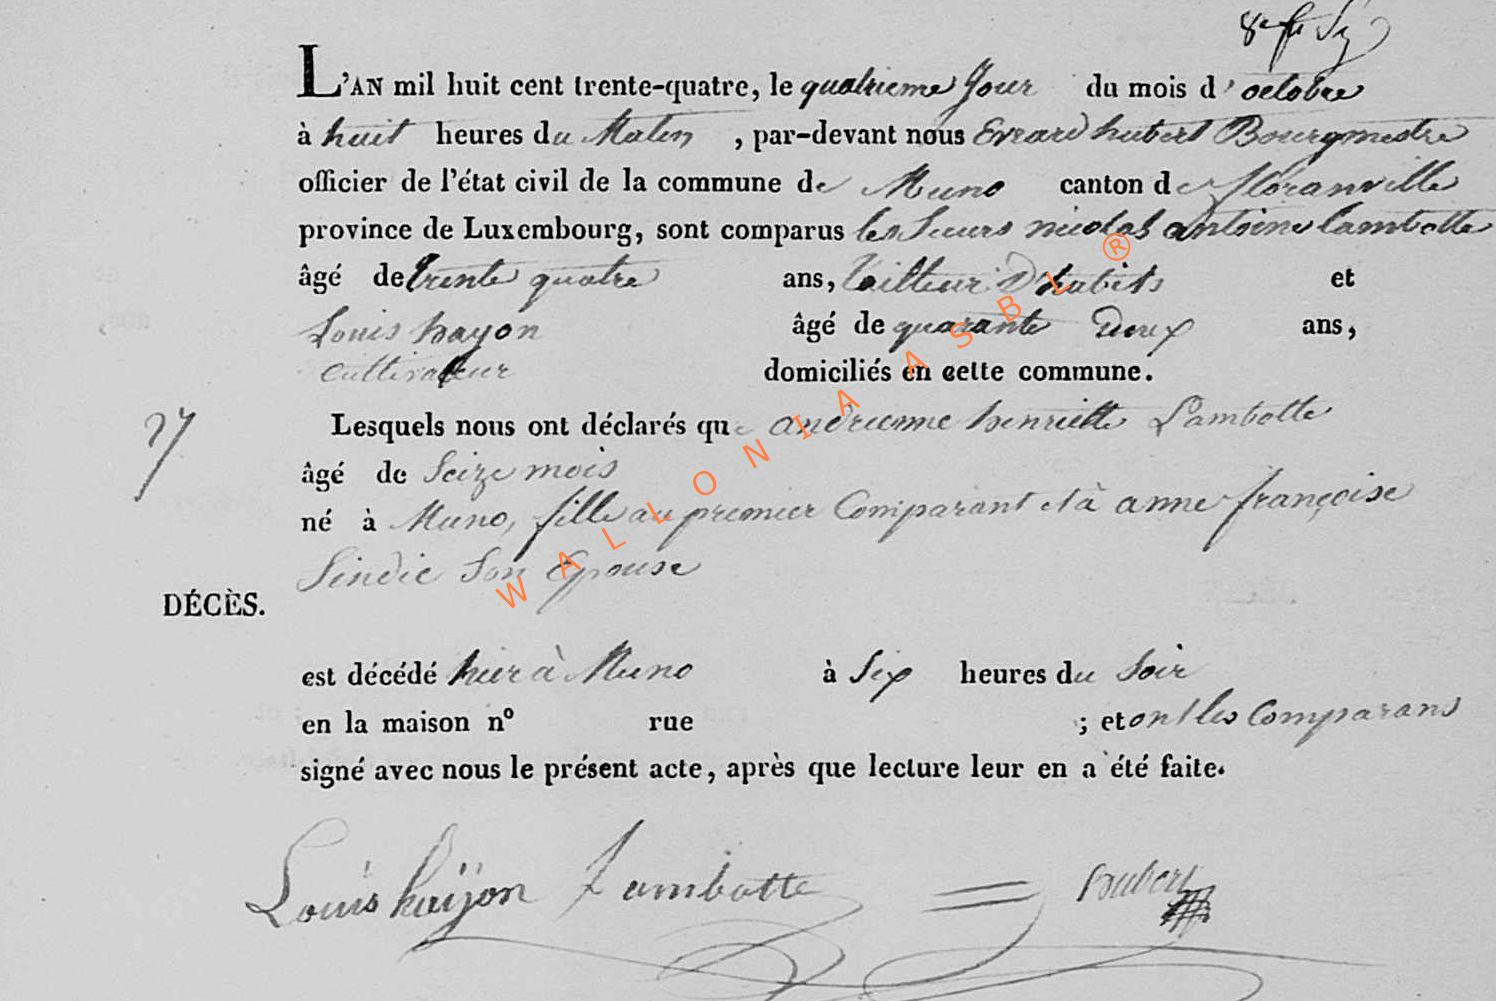 L'AN mil huit cent trente-quatre, le quatrieme Jour du mois d'octobre
à huit heures du Matin, par-devant nous Evrard hubert Bourgmestre
officier de l'état civil de la commune de Muno canton de floranville
province de Luxembourg, sont comparus les Sieurs nicolas antoine lambotte
âgé de trente quatre ans, tailleur D'habits et
Louis hayon âgé de quarante Deux ans,
cultivateur domiciliés en cette commune.
27 Lesquels nous ont déclarés que andrienne henriette Lambotte
âgé de Seize mois
né à Muno, fille au premier Comparant et à anne françoise
Sindic Son Epouse
DÉCÈS.
est décédé hier à Muno à Six heures du Soir
en la maison nº rue ; et ont les Comparans
signé avec nous le présent acte, après que lecture leur en a été faite.
Louis haÿon Lambotte hubert
WALLONIA ASBL ®